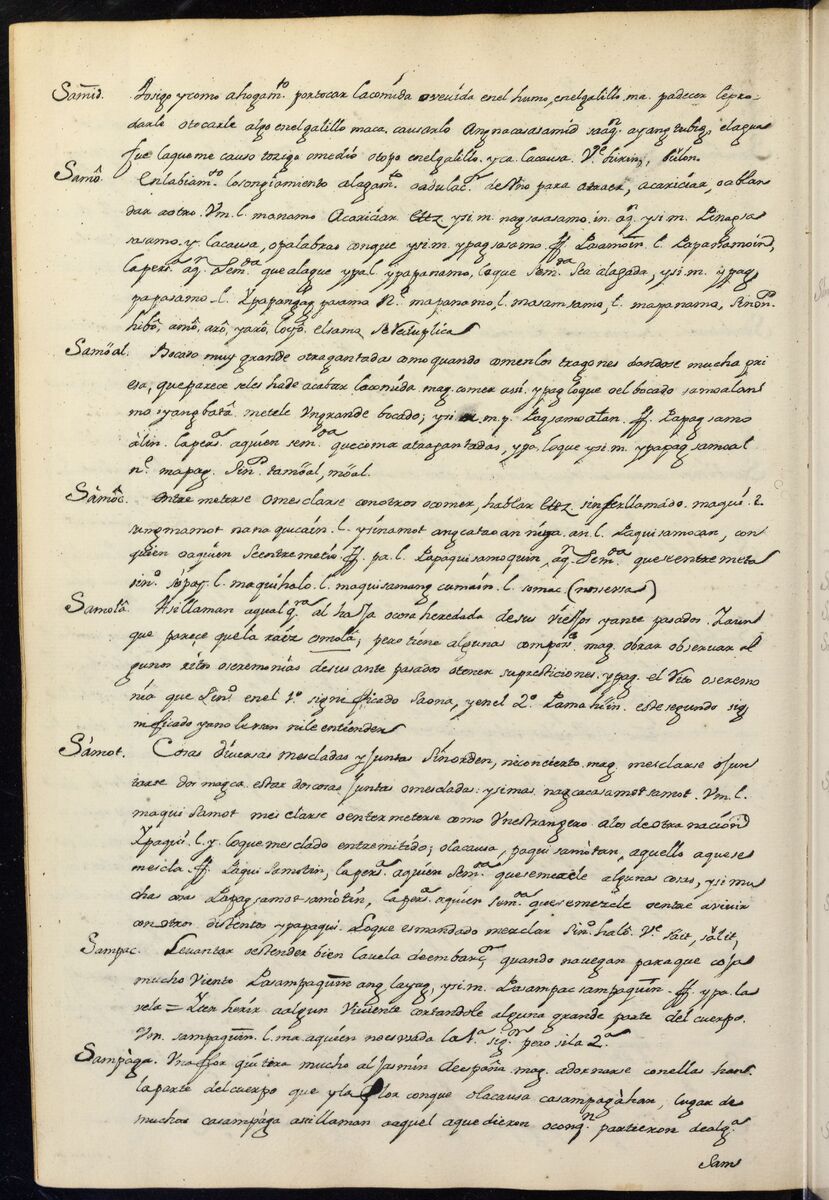 Samid. tosigo y como ahogam.to por tocar la comida o vevida en el humo, en el galillo. ma. padecer lo pro-
darle o tocarle algo en el galillo maca. causarlo Ang nacasasamid sa aq.n ay ang tubig, el agua
fue la que me causo tosigo o medio otopo en el galillo. y ca. la causa. V.e hirin,
Samô. Enlabiam.to lisongiamiento alagam.to o adulac.n de Uno para atraer, acariciar, o ablan
dar a otro. Vm. l. manamo Acariciar ettz. y si. m. nag sasasamo. in. aq.n y si. m. Pinagsa
sasamo. y la causa, o palabras con que y si. m. ypag sasamo. ff. Pasamoin. l. Papanamoin,
la pers.a aq.n Sem.da que alague y pa l. y papanamo, lo que sem.da sea alagada, y si. m. ypag
papasamo. l. Ypapangag pasama N.c mapanamo, l. masamsamo, l. mapanama, Sinon.
hibo, amô, arô, yarô, loyo. el sama se Reduplica
Samöal. Bocado muy grande o tragantadas como quando comen los tragones dandose mucha pri
esa, que parece se les ha de acabar la comida. mag. comer assi. y pag lo que o el bocado samoalan
mo iyang batâ. metele Un grande bocado; y si m. p. Pag samoalan. ff. Papag samo
alin. la pers.a aquien sem.da que coma atragantadas, y pa, lo que y si. m. ypapag samoal
n.c mapag. Sin.o tamöal, möal.
Sàmôc. Entre meterse o mesclarse con otros o comer, hablar ettz. sin ser llamádo. maqui. 2.
sungmamot na na quicain. l. y sinamot ang catao an niya. an. l. Paquisamocan, con
quien o aquien se entre metió. ff. pa. l. Papaquisamoquin, aq.n Sem.da que se entre meta
sin.o l. maquihalo. l. maquisamang cumain. l. somac (no se usa)
Samolâ. Asi llaman a qualq.ra al haJa o cosa heredada de sus vieJos y ante pasados.
que parece que la raéz omolâ, pero tiene algunas mag. obrar observar al
gunos ritos o seremonias de sus ante pasados o tener supresticiones. y pag. el Rito o seremo
nia que Sin.o en el 1.o signi fficado Saona, y en el 2.o Pamahiin. este segundo sig
nifficado ya no lo usan ni le entienden
Sàmot. Cosas diversas mescladas y Juntas Sin orden, ni concierto. mag. mesclarse o Jun
tarse dos magca. estar dos cosas Juntas o mescladas: y si mas nagcacasamot samot. Vm. l.
maqui samot mesclarse o entermeterse como Un estrangero. a los de otra nación
Ypaqui. l. y. lo que mesclado entremitido; o la causa, paqui samòtan, aquello a que se
mescla. ff. Paqui Samotin, la pers.a aquien Sem.da que se mescle algunas cosas, y si mu
chas cosas Papag samot-samòtin, la pers.a aquien sem.da que se mescle o entre a vivir
con otros distintos y papaqui. Lo que es mandado mezclar Sin.o halò. V.e sait, sälit,
Sampac. Levantar o estender bien la vela de embarc.n quando navegan para que coJa
mucho viento Pasampaquin ang layag, y si. m. Pasampac sampaquin. ff. y pa. la
vela = Item herir a algun viviente cortandole alguna grande parte del cuerpo.
Vm. sampaquin. l. ma. aquien no es usada la 1.a sig.on pero si la 2.a
Sampàga. Una fflor q.e tira mucho al Jasmin de españa mag. adornarse con ellas han.
la parte del cuerpo que y la fflor con que o la causa casampagàhan, lugar de
muchas casampàga asi llaman a aquel a que dieron o conq.n partieron de alg.a
Sam